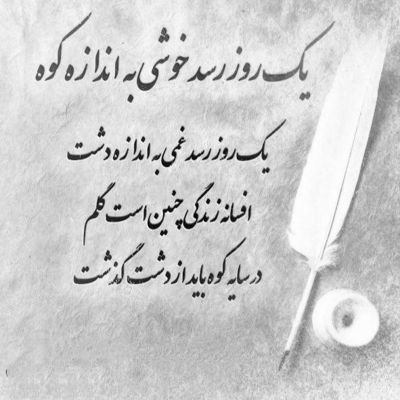 یک روز رسد خوشی به اندازه کوه
یک روز رسد غمی به اندازه دشت
افسانه زندگی چنین است گلم
در سایه کوه باید از دشت گذشت